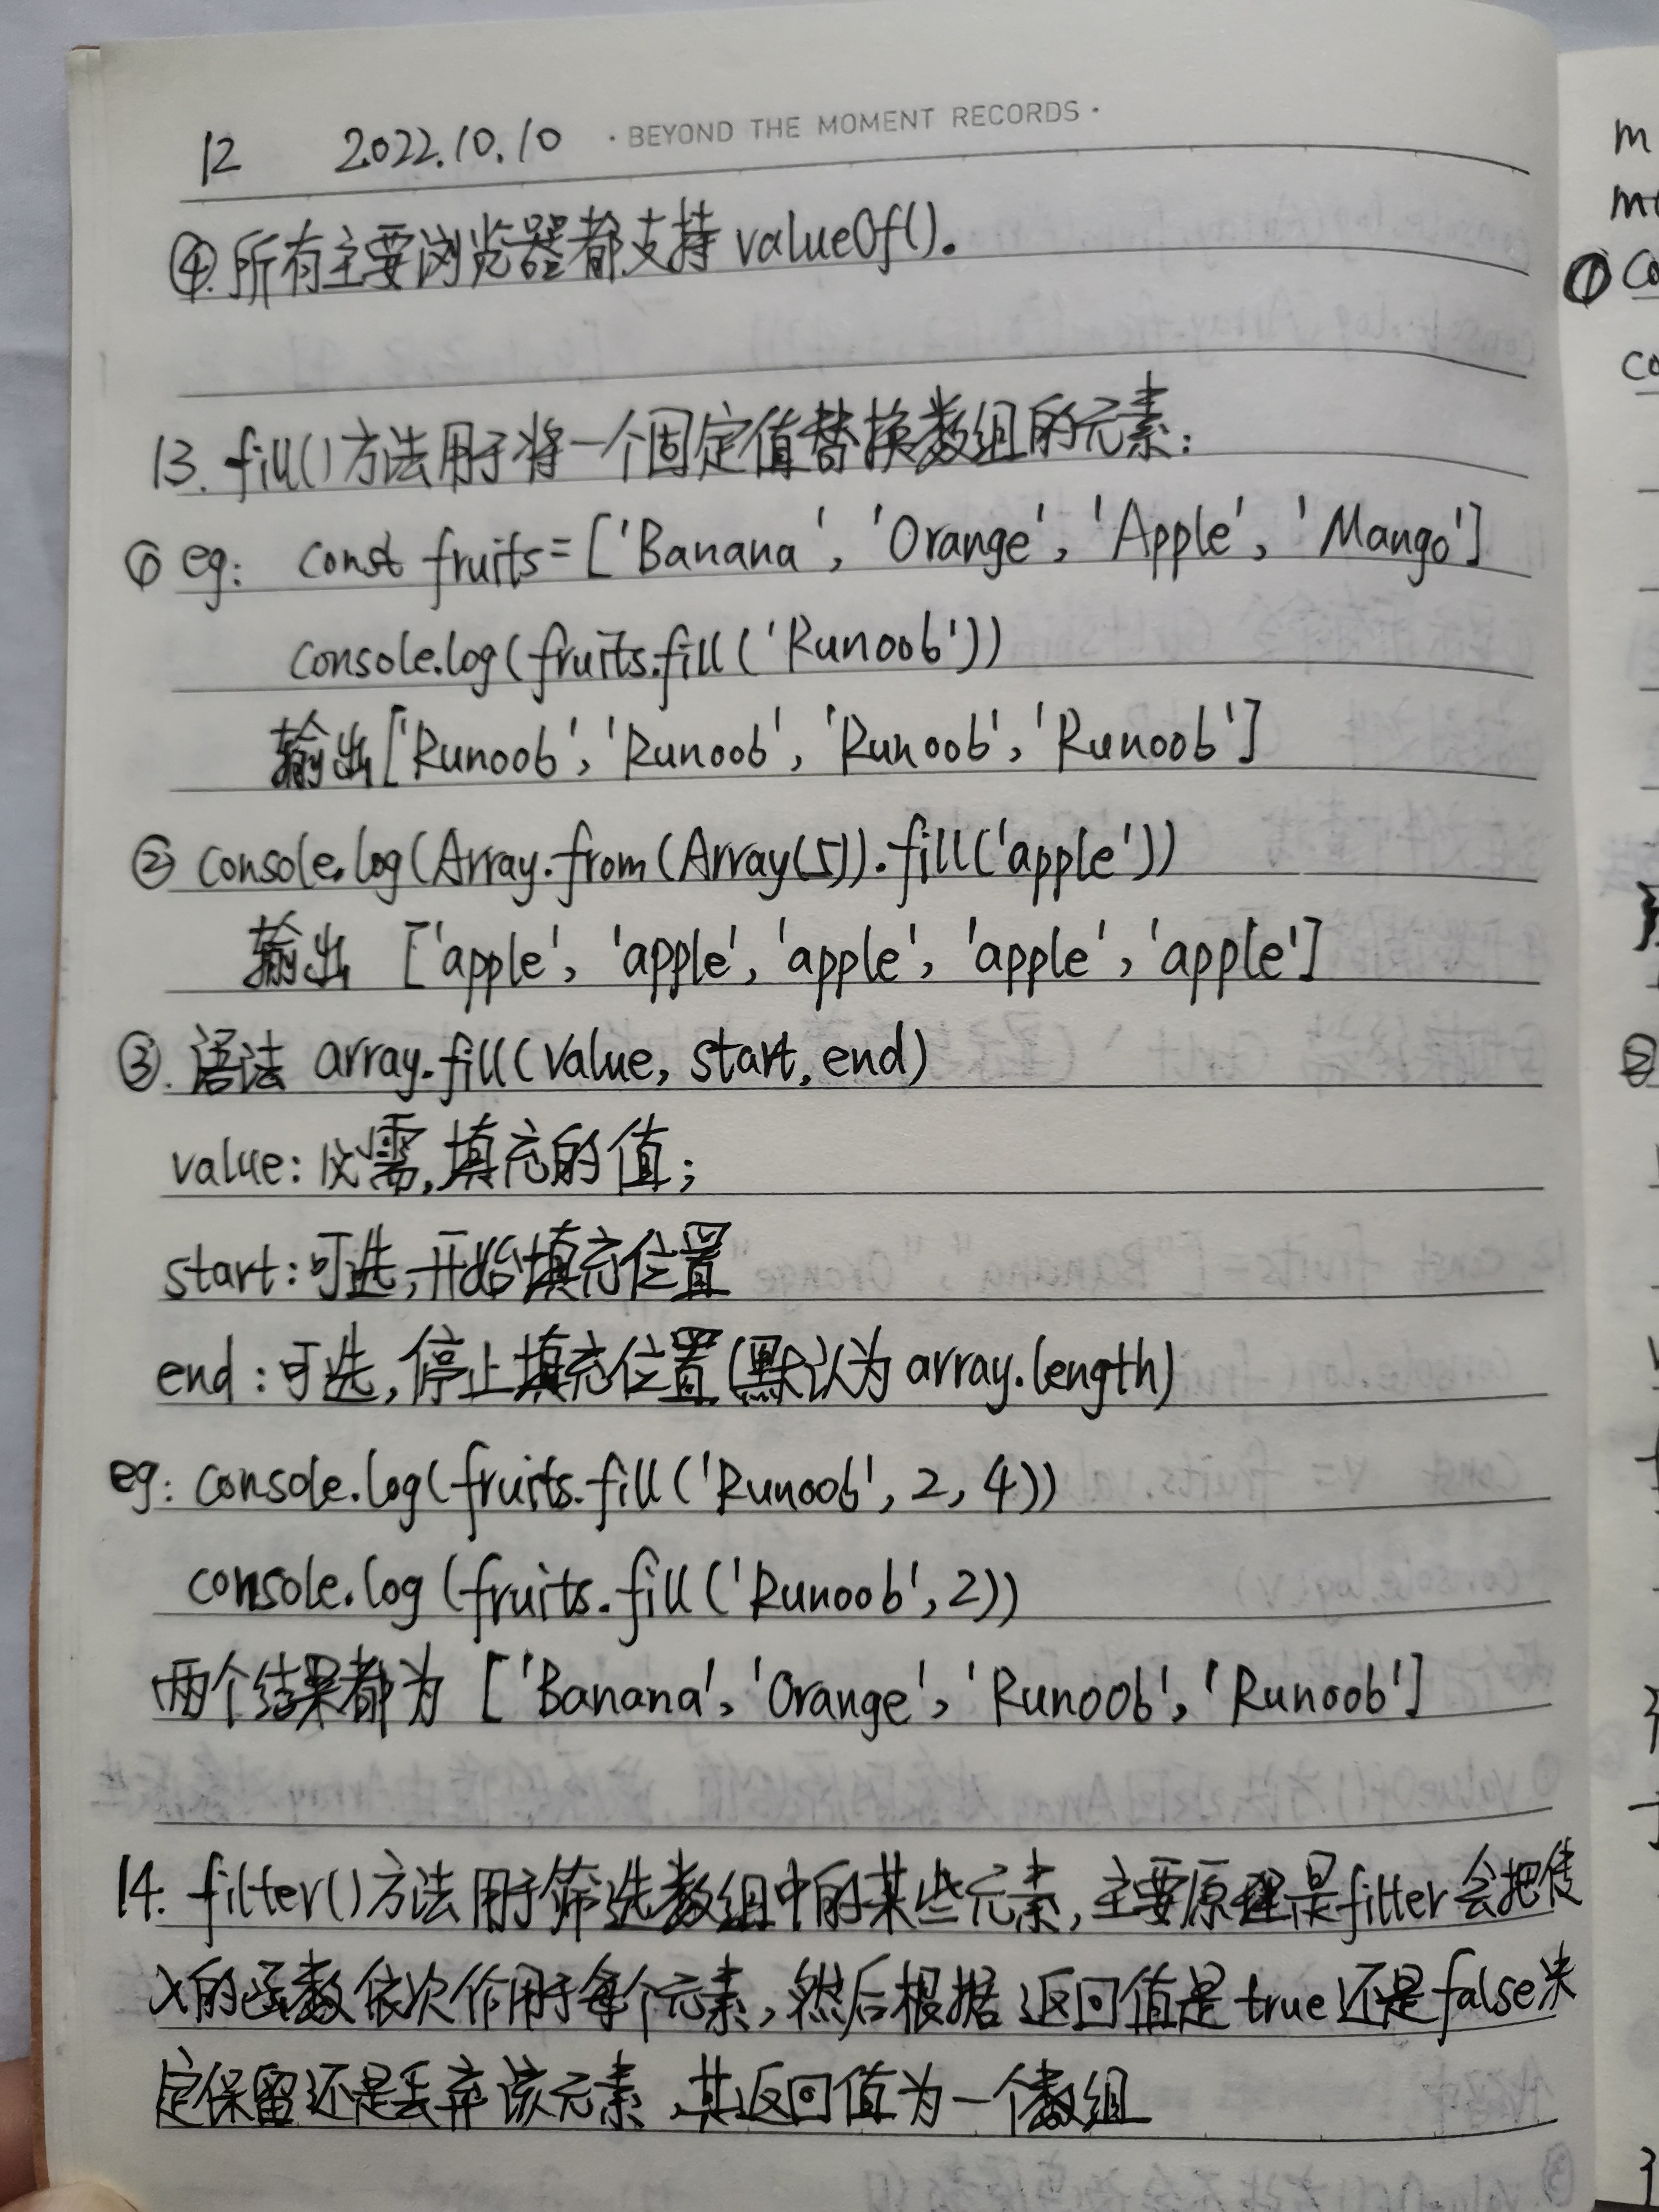 12 2022.10.10 · BEYOND THE MOMENT RECORDS ·
④.所有主要浏览器都支持 valueOf().
13. fill()方法用于将一个固定值替换数组的元素:
① eg: const fruits=['Banana', 'Orange', 'Apple', 'Mango']
console.log(fruits.fill('Runoob'))
输出['Runoob','Runoob','Runoob','Runoob']
② console.log(Array.from(Array(5)).fill('apple'))
输出 ['apple', 'apple', 'apple', 'apple', 'apple']
③. 语法 array.fill(value, start, end)
value: 必需,填充的值;
start:可选,开始填充位置
end:可选,停止填充位置(默认为array.length)
eg: console.log(fruits.fill('Runoob', 2, 4))
console.log(fruits.fill('Runoob', 2))
两个结果都为 ['Banana', 'Orange', 'Runoob', 'Runoob']
14. filter()方法用于筛选数组中的某些元素,主要原理是filter会把传
入的函数依次作用于每个元素,然后根据返回值是true还是false决
定保留还是丢弃该元素,其返回值为一个数组